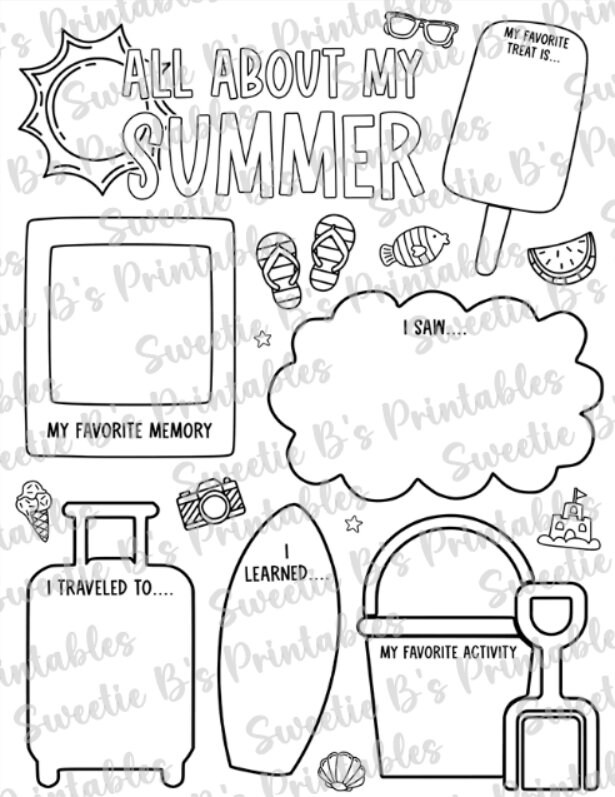 ALL ABOUT MY
SUMMER
MY FAVORITE
TREAT IS...
MY FAVORITE MEMORY
I SAW....
I TRAVELED TO....
I
LEARNED....
MY FAVORITE ACTIVITY
Sweetie B's Printables